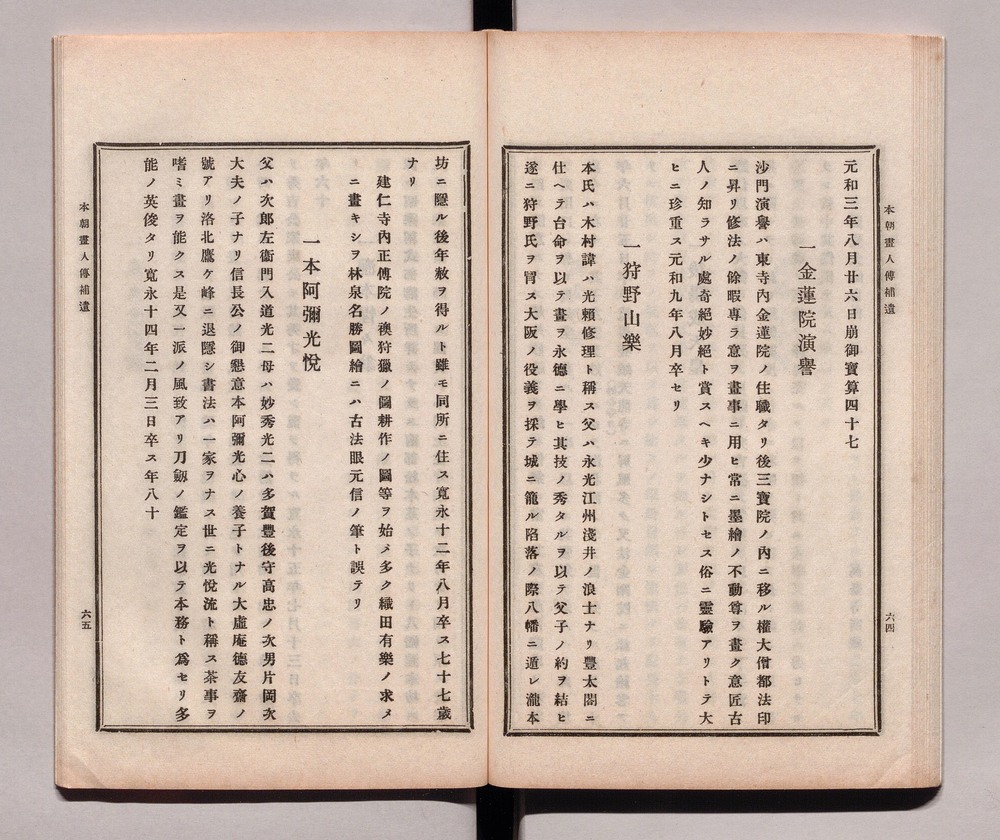 本朝畫人傳補遺
元和三年八月廿六日崩御寶算四十七
一金蓮院演譽
沙門演譽ハ東寺內金蓮院ノ住職タリ後三寶院ノ內ニ移ル權大僧都法印
ニ昇リ修法ノ餘暇專ラ意ヲ畫事ニ用ヒ常ニ墨繪ノ不動尊ヲ畫ク意匠古
人ノ知ラサル處奇絕妙絕ト賞スヘキ少ナシトセス俗ニ靈驗アリトテ大
ヒニ珍重ス元和九年八月卒セリ
一狩野山樂
本氏ハ木村諱ハ光賴修理ト稱ス父ハ永光江州淺井ノ浪士ナリ豐太閤ニ
仕ヘテ台命ヲ以テ畫ヲ永德ニ學ヒ其技ノ秀タルヲ以テ父子ノ約ヲ結ヒ
遂ニ狩野氏ヲ冐ス大阪ノ役義ヲ採テ城ニ籠ル陷落ノ際八幡ニ遁レ瀧本
六四
坊ニ隱ル後年赦ヲ得ルト雖モ同所ニ住ス寬永十二年八月卒ス七十七歲
ナリ
建仁寺內正傳院ノ襖狩獵ノ圖耕作ノ圖等ヲ始メ多ク織田有樂ノ求メ
ニ畫キシヲ林泉名勝圖繪ニハ古法眼元信ノ筆ト誤テリ
一本阿彌光悅
父ハ次郎左衞門入道光二母ハ妙秀光二ハ多賀豐後守高忠ノ次男片岡次
大夫ノ子ナリ信長公ノ御懇意本阿彌光心ノ養子トナル大虛庵德友齋ノ
號アリ洛北鷹ケ峰ニ退隱シ書法ハ一家ヲナス世ニ光悅流ト稱ス茶事ヲ
嗜ミ畫ヲ能クス是又一派ノ風致アリ刀劔ノ鑑定ヲ以テ本務ト爲セリ多
能ノ英俊タリ寬永十四年二月三日卒ス年八十
本朝畫人傳補遺
六五